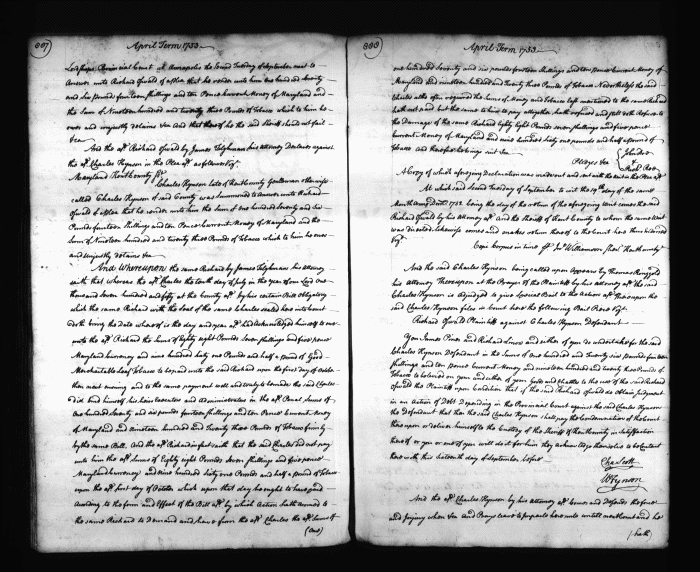 887
April Term 1753
Lordships Provincial Court at Annapolis the Second Tuesday of September next to
Answer unto Richard Oswald of a plea that he render unto him one hundred Seventy
and six pounds fourteen Shillings and ten pence Current Money of Maryland and
the Sum of Nineteen hundred and twenty three Pounds of Tobacco which to him he
owes and unjustly detains &ca And that thereof he the said Sheriff should not fail
&ca
And the afd Richard Oswald by James Tilghman his attorney declares against
the afd Charles Hynson in the Plea afd as follows Vizt
Maryland Kent County Sst
Charles Hynson late of Kent County Gentleman otherwise
called Charles Hynson of said County was Summoned to Answer unto Richard
Oswald of a plea that he render unto him the Sum of one hundred Seventy and Six
Pounds fourteen Shillings and ten Pence Current Money of Maryland and the
Sum of Nineteen hundred and twenty three Pounds of Tobacco which to him he owes
and unjustly detains &ca
And Whereupon the same Richard by James Tilghman his Attorney
saith that whereas the afd Charles the tenth day of July in the year of our Lord one
thousand Seven hundred and fifty at the County afd by his certain Bill Obligatory
which the same Richard with the Seal of the same Charles sealed here into Court
doth bring the date whereof is the day and year afd had acknowledged himself to owe
unto the afd Richard the Sum of Eighty eight Pounds Seven Shillings and five pence
Maryland Currency and nine hundred sixty one Pounds and half a pound of Good
Merchantable Leaf Tobacco to be paid unto the said Richard upon the first day of October
then next ensuing and to the same payment well and truly to be made the said Charles
did bind himself his heirs Executors and administrators in the afd Penal Sums of
One hundred Seventy and six pounds fourteen Shillings and ten Pence Current Money
of Maryland and Nineteen hundred and Twenty three Pounds of Tobacco firmly
by the same Bill. And the afd Richard in fact saith that the said Charles did not pay
unto him the afd Sums of Eighty eight Pounds Seven Shillings and five pence
Maryland Currency and nine hundred Sixty one Pounds and half a Pound of Tobacco
upon the afd first day of October which upon that day he ought to have paid
According to the form and Effect of the Bill afd by which Action hath accrued to
the same Richard to Demand and have from the afd Charles the afd Sums of
(One)
888
April Term 1753
one hundred Seventy and six pounds fourteen Shillings and ten pence Current Money of
Maryland and nineteen hundred and twenty three Pounds of Tobacco Nevertheless the said
Charles altho often required the Sums of Money and Tobacco last mentioned to the same Richard
hath not paid but the same to him to pay altogether hath refused and still doth Refuse to
the Damage of the same Richard Eighty Eight Pounds Seven Shillings and five pence
Current Money of Maryland and nine hundred Sixty one pounds and half a pound of
Tobacco and therefore he brings suit &ca
Pledges &ca
John Doe
&
Richd Roe
A Copy of which aforegoing declaration was indorsed and sent with the writ in the Plea afd
At which said Second Tuesday of September to wit the 19th day of the same
Month Anno Dom 1752. being the day of the return of the aforegoing writ comes the said
Richard Oswald by his Attorney afd And the Sheriff of Kent County to whom the same writ
was directed likewise comes and makes return thereof to the Court here thus Indorsed
Vizt
Cepi Corpus in Cur pr Jno Williamson Sher Kent County
And the said Charles Hynson being called upon Appears by Thomas Ringgold
his Attorney Thereupon at the Prayer of the Plaintiff by his attorney afd the said
Charles Hynson is Adjudged to give Special Bail to the Action afd Thereupon the
said Charles Hynson files in Court here the following Bail Piece Vizt
Richard Oswald Plaintiff against Charles Hynson Defendant
You James Piner and Richard Lloyd and either of you do undertake for the said
Charles Hynson Defendant in the Sum of one hundred and Seventy six pounds fourteen
Shillings and ten pence Current Money and nineteen hundred and twenty three Pounds of
Tobacco to be levied on you and either of your Goods and Chattles to the use of the said Richard
Oswald the Plaintiff upon Condition that if the said Richard Oswald do Obtain Judgment
in an Action of Debt Depending in the Provincial Court against the said Charles Hynson
the Defendant that then the said Charles Hynson shall pay the Condemnation of the Court
thereupon or deliver himself to the Custody of the Sheriff of Kent County in Satisfaction
thereof or you or one of you will do it for him They acknowledge themselves to be Content
herewith this Sixteenth day of September before
Cha Scott
W Hynson
And the afd Charles Hynson by his attorney afd comes and defends the force
and Injury when &ca and Prays leave to Imparle hereunto untill next Court and he
(hath)